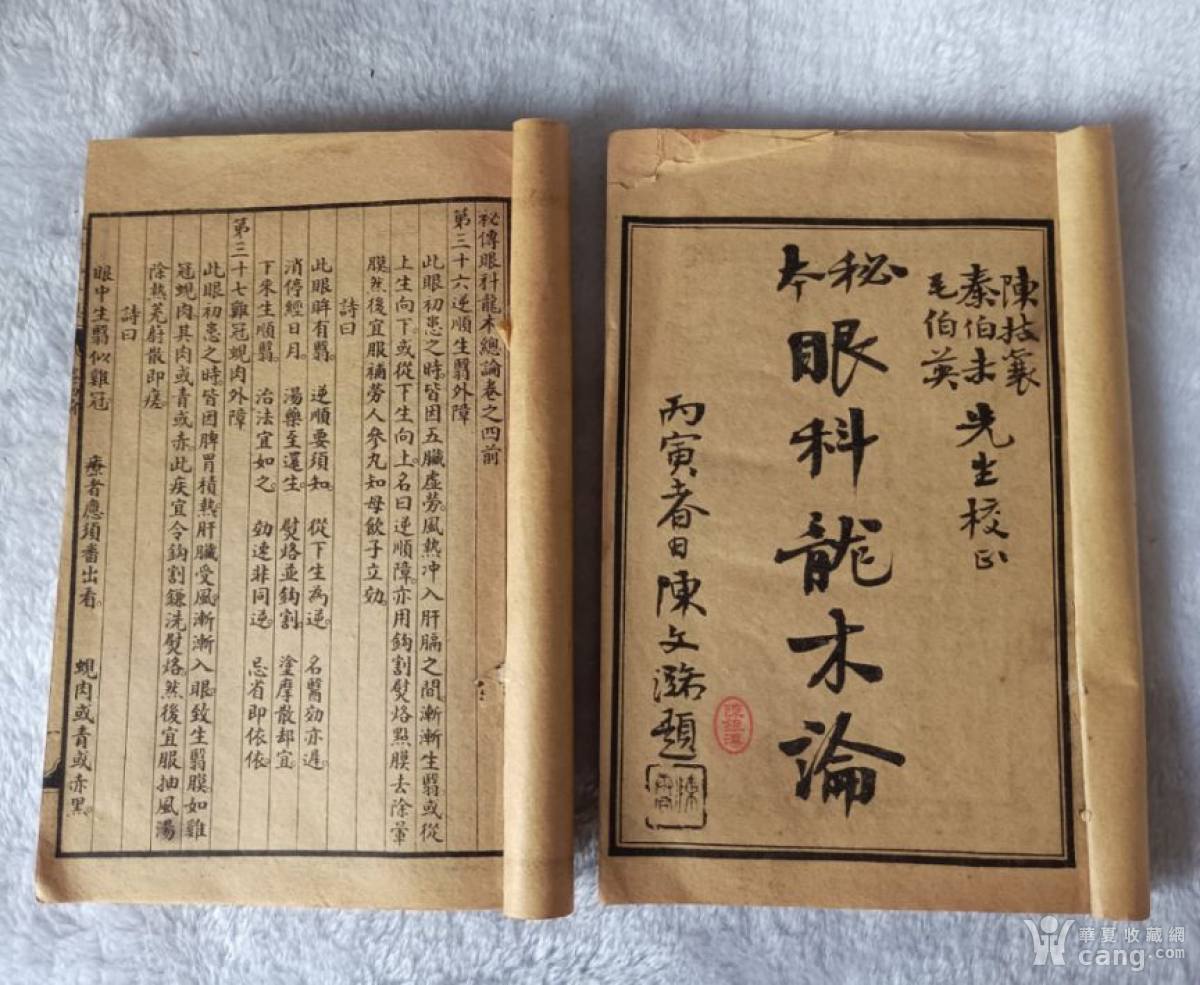 陳技襄
秦伯未
毛伯英
先生校正
秘本
眼科龍木論
丙寅春日陳文潞題
秘傳眼科龍木總論卷之四前
第三十六逆順生翳外障
此眼初患之時。皆因五臟虛勞。風熱冲入肝膈之間。漸漸生翳。或從
上生向下。或從下生向上。名曰逆順障。亦用鈎割熨烙。點膜去除暈
膜。然後宜服補勞人參丸知母飲子立効。
詩曰
此眼眸有翳。 逆順要須知。 從下生為逆。 名醫効亦遲。
消停經日月。 湯藥至還生 熨烙並鈎割。 塗摩散却宜
下來生順翳。 治法宜如之 効速非同逆。 忌省即依依
第三十七雞冠蜆肉外障
此眼初患之時。皆因脾胃積熱。肝臟受風。漸漸入眼。致生翳膜。如雞
冠蜆肉。其肉或青或赤。此疾宜令鈎割鐮洗熨烙。然後宜服抽風湯
除熱茺蔚散即瘥。
詩曰
眼中生翳似雞冠。 療者應須番出看。 蜆肉或青或赤黑。
華夏收藏網
cang.com